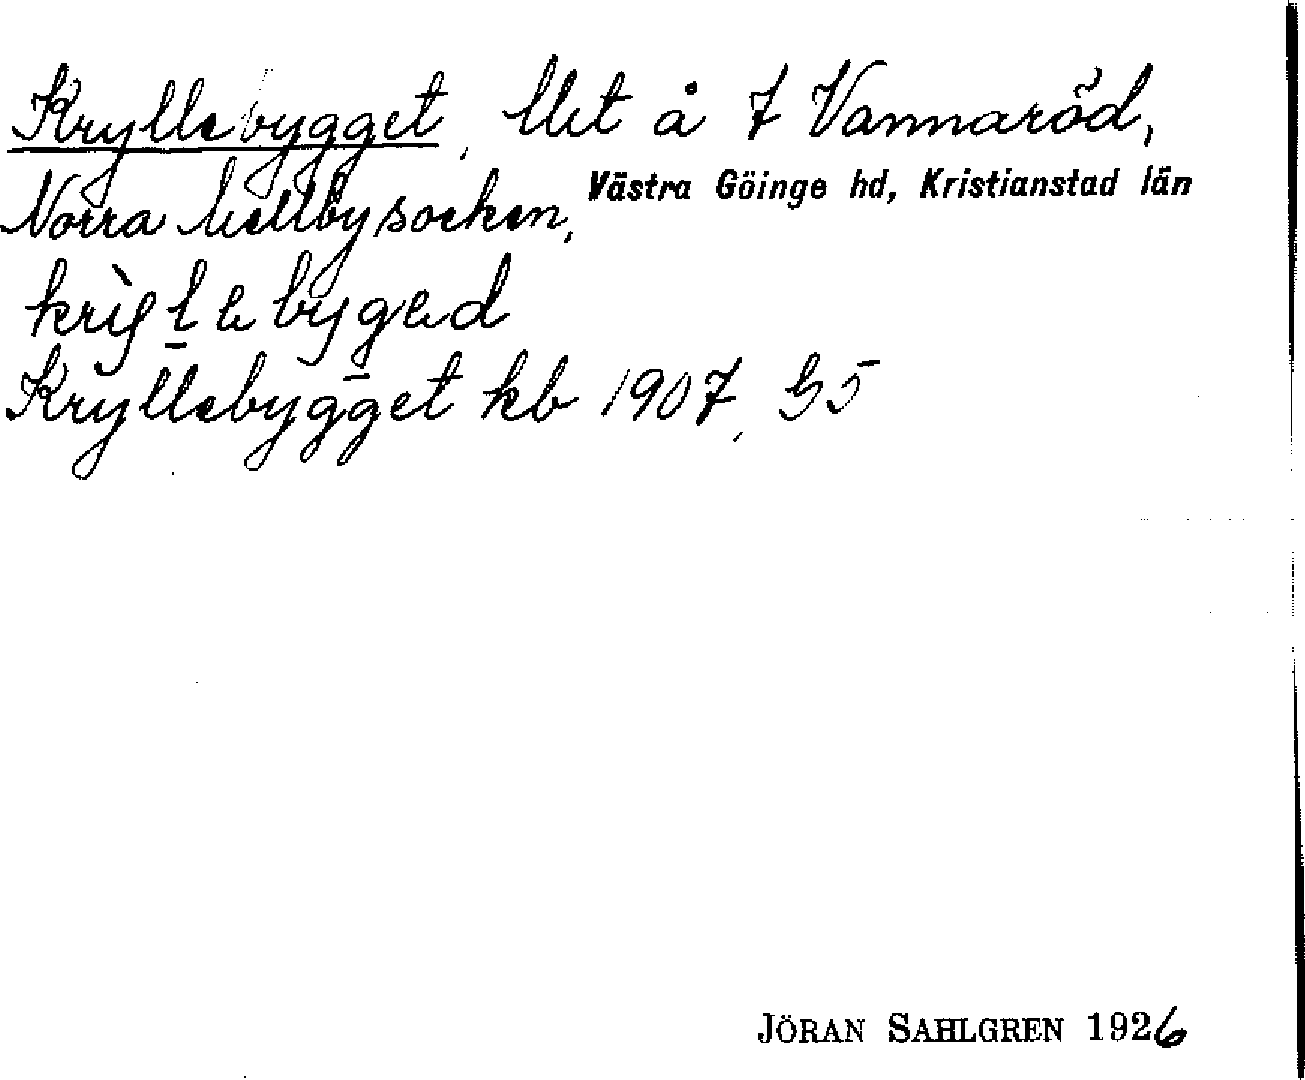 Kryllebygget, lht å 7 Vannaröd,
Norra Mellby socken, Västra Göinge hd, Kristianstad län
Kryllebygget kb 1907, 35
JÖRAN SAHLGREN 1926